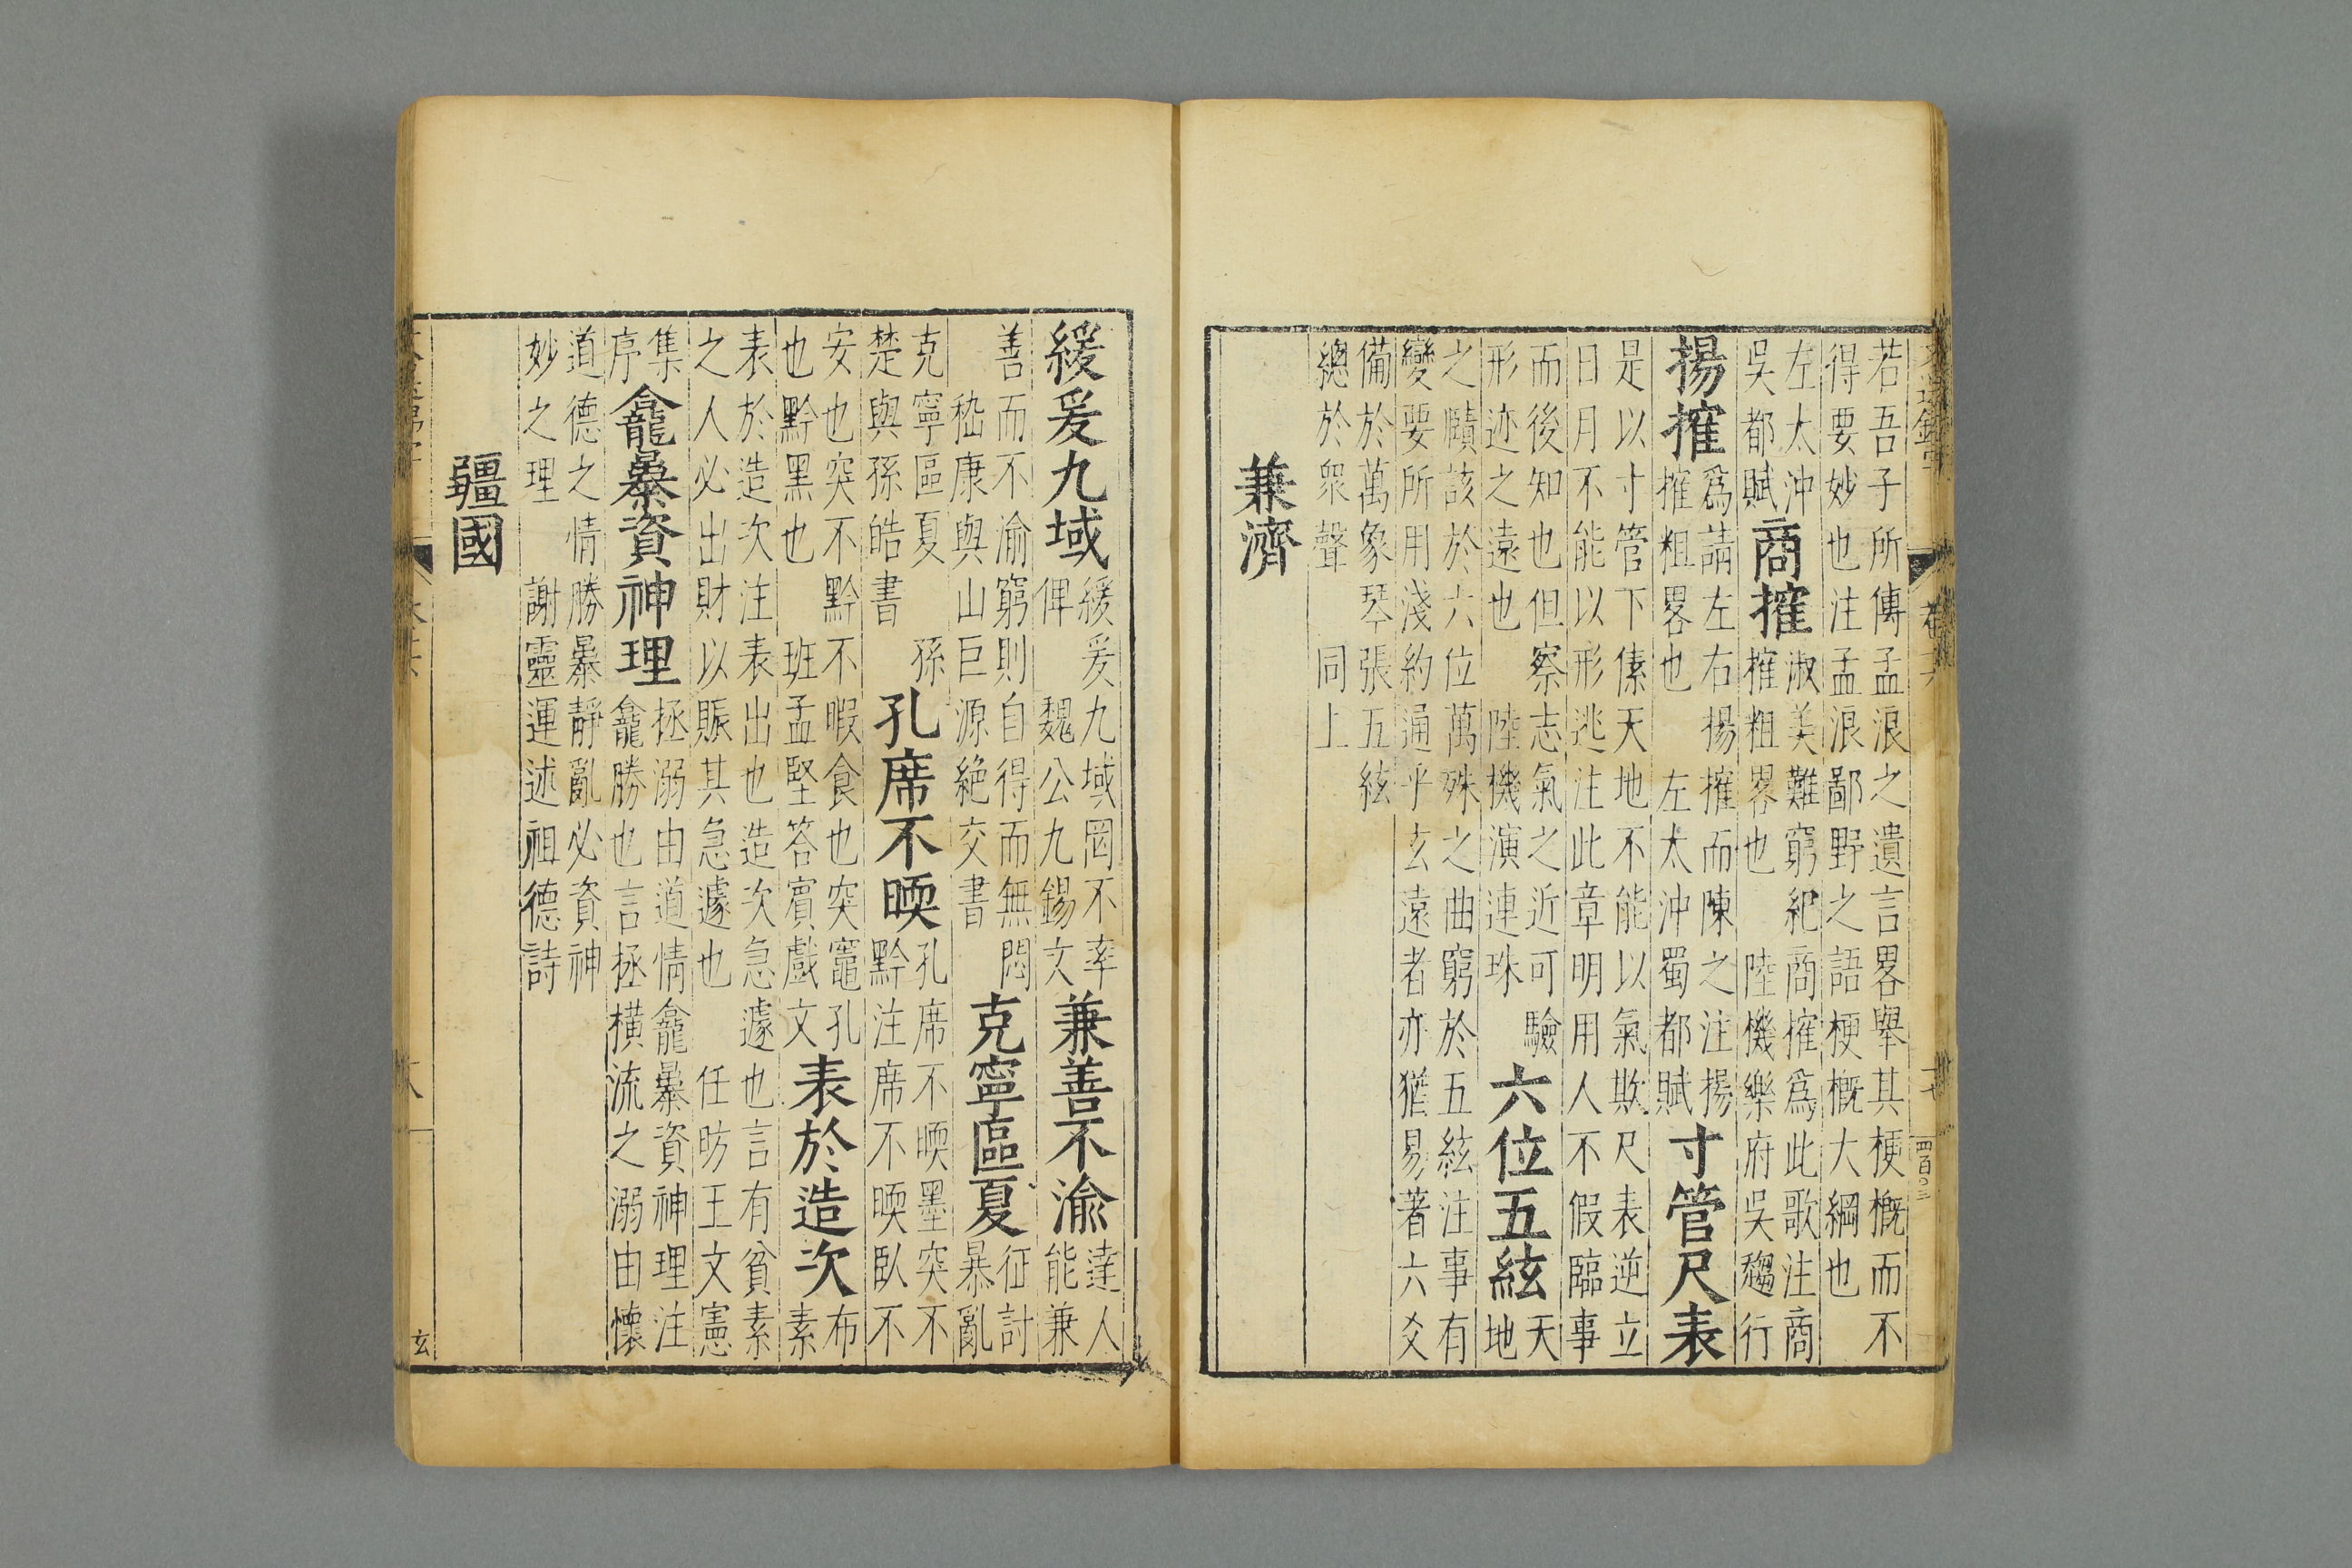 若吾子所傳孟浪之遺言畧舉其梗概而不
得要妙也注孟浪鄙野之語梗概大綱也
左太沖
吳都賦
商搉
淑美難窮紀商搉爲此歌注商
搉粗畧也 陸機樂府吳趨行
揚搉
爲請左右揚搉而陳之注揚
搉粗畧也 左太沖蜀都賦
寸管尺表
是以寸管下傃天地不能以氣欺尺表逆立
日月不能以形逃注此章明用人不假臨事
而後知也但察志氣之近可驗
形迹之遠也 陸機演連珠
六位五絃
天
地
之賾該於六位萬殊之曲窮於五絃注事有
變要所用淺約通乎玄遠者亦猶易著六爻
備於萬象琴張五絃
總於眾聲 同上
兼濟
四百〇三
緩爰九域
緩爰九域罔不率
俾 魏公九錫文
兼善不渝
達人
能兼
善而不渝窮則自得而無悶
嵇康與山巨源絕交書
克寧區夏
征討
暴亂
克寧區夏 孫
楚與孫皓書
孔席不㬉
孔席不㬉墨突不
黔注席不㬉臥不
安也突不黔不暇食也突竈孔
也黔黑也 班孟堅答賓戲文
表於造次
布
素
表於造次注表出也造次急遽也言有貧素
之人必出財以賑其急遽也 任昉王文憲
集
序
龕暴資神理
拯溺由道情龕暴資神理注
龕勝也言拯橫流之溺由懷
道德之情勝暴靜亂必資神
妙之理 謝靈運述祖德詩
疆國
玄